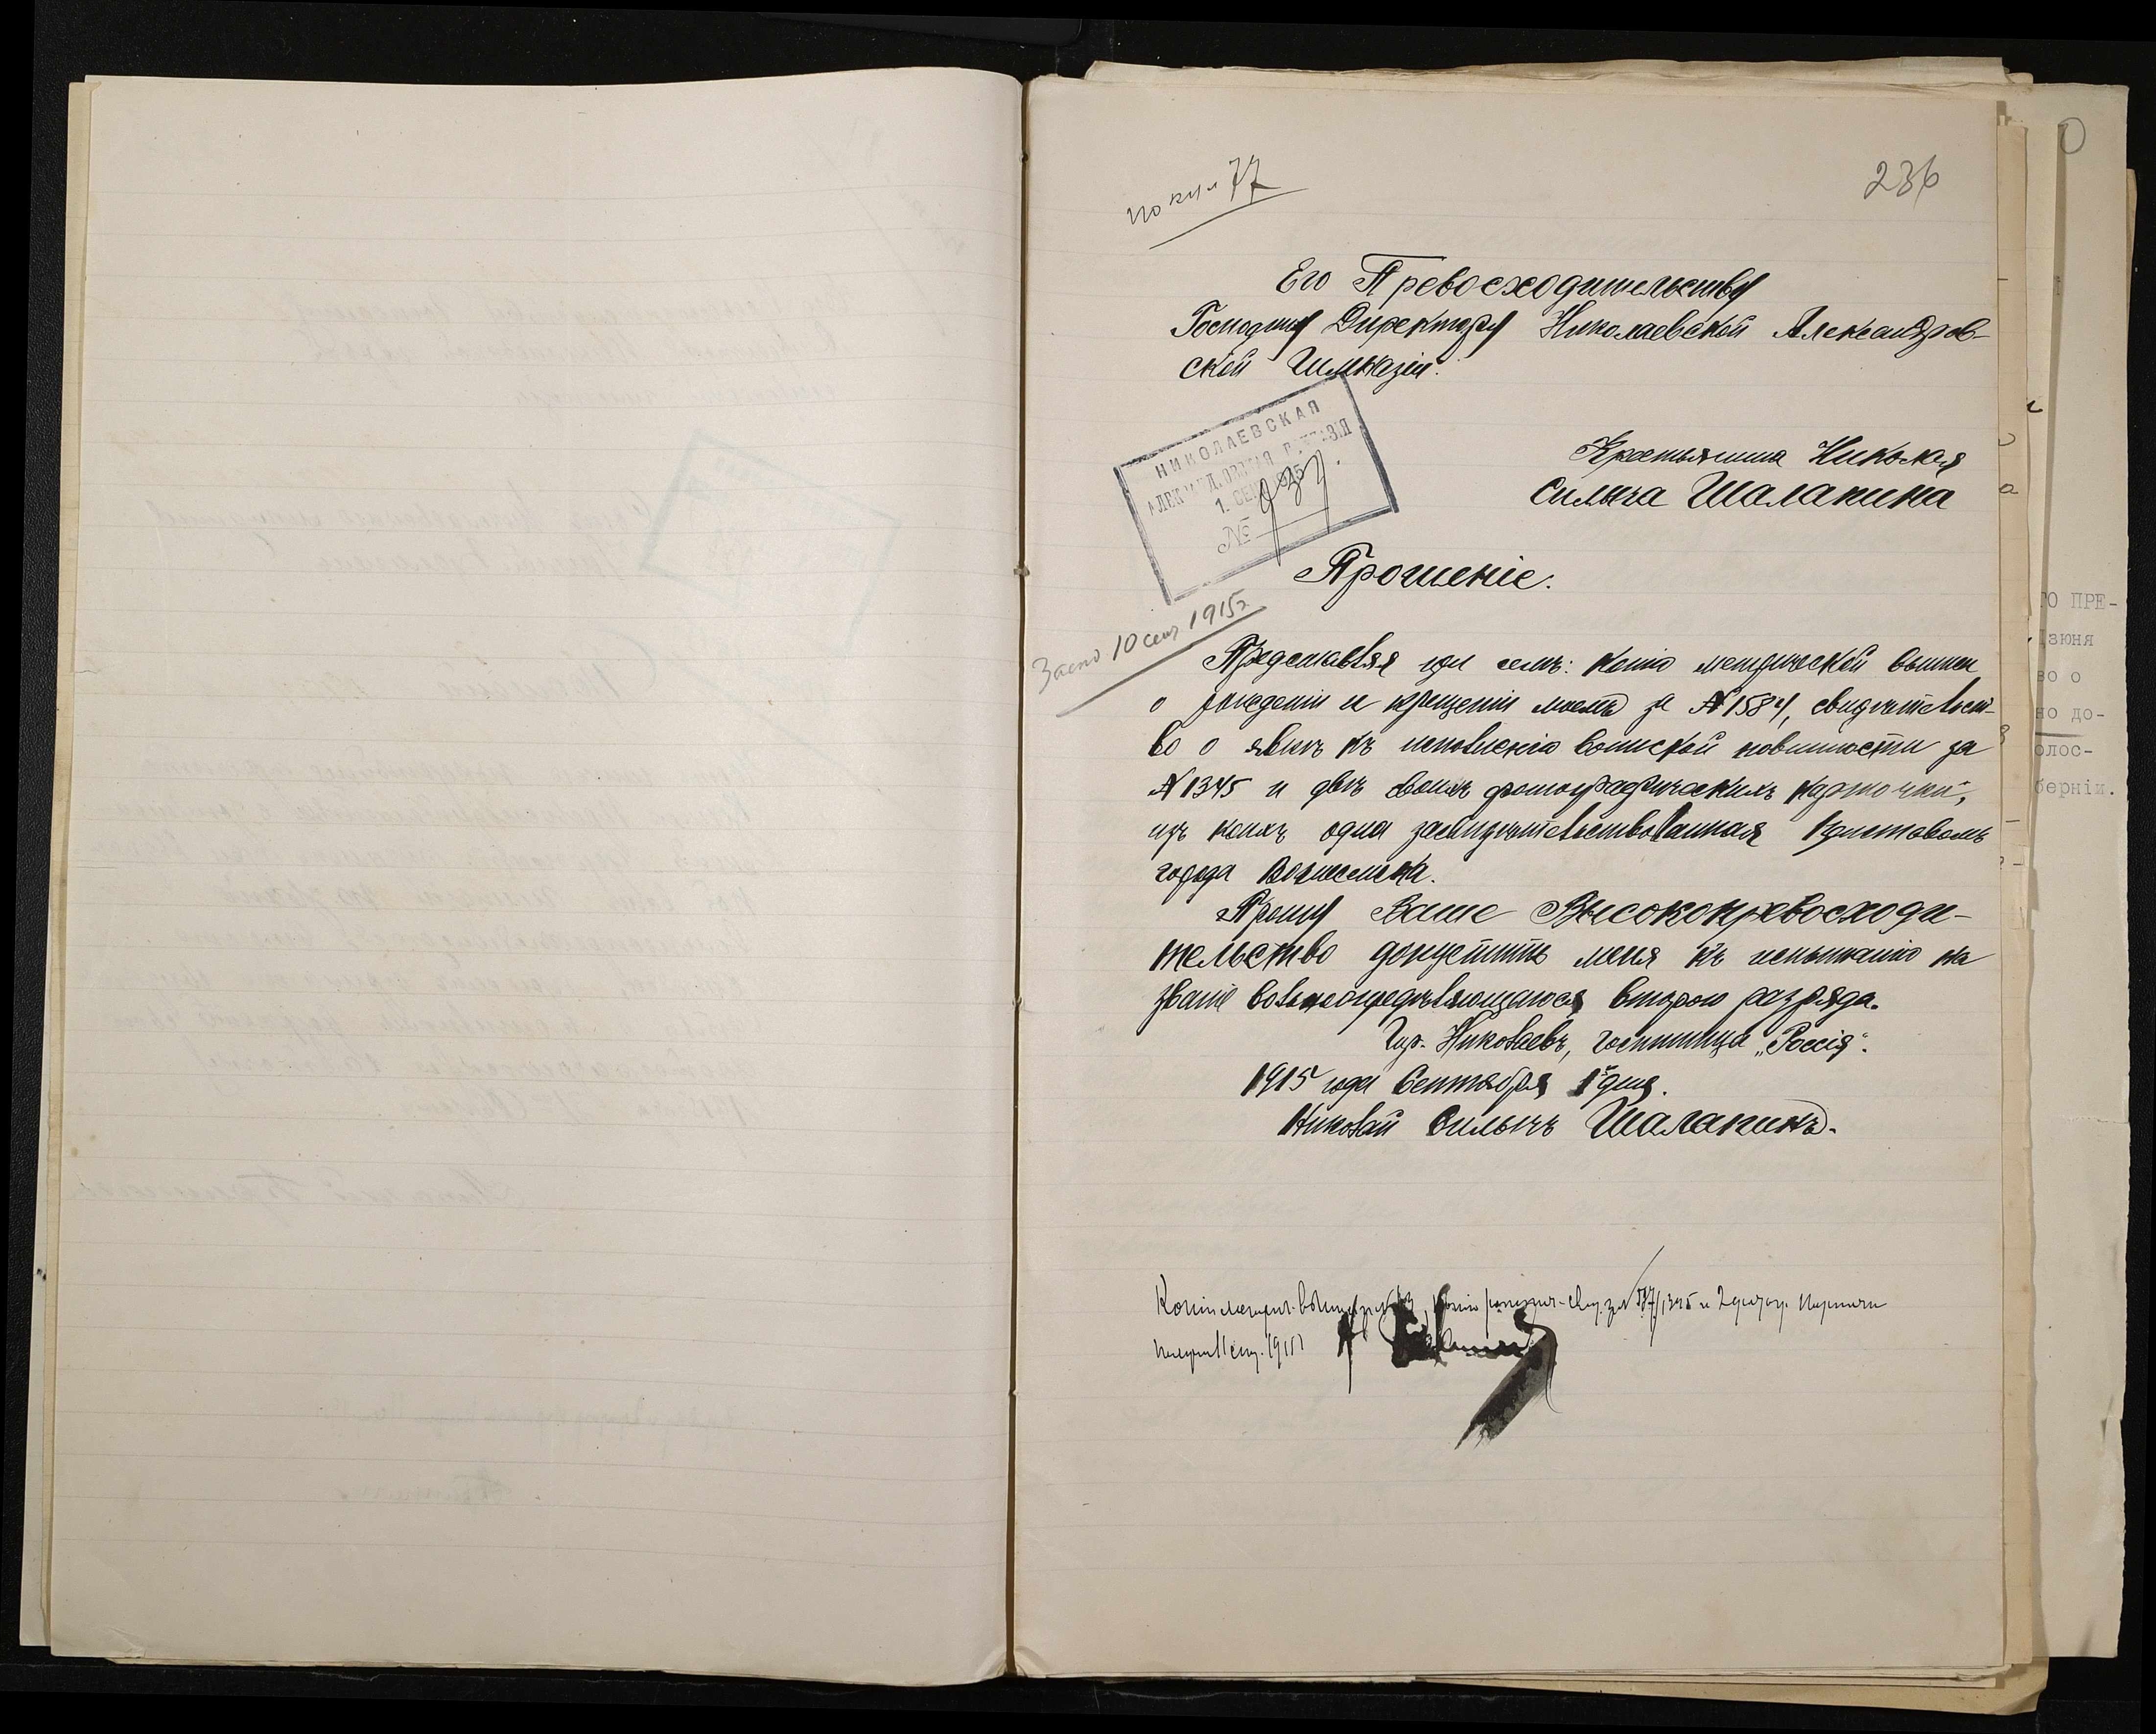 77
236
Его Превосходительству
Господину Директору Николаевской Александров-
ской Гимназіи.
НИКОЛАЕВСКАЯ
1. СЕН. 1915
№ 939.
Крестьянина Николая
Силыча Шалапина
Прошеніе.
10 сен 1915г
Представляя при семъ: копію метрической выписи
о рожденіи и крещеніи моемъ за №1584, свидѣтельст-
во о явкѣ къ исполненію воинской повинности за
№1345 и двѣ своихъ фотографическихъ карточки,
изъ коихъ одна засвидѣтельствованная Приставомъ
города Вознесенска.
Прошу Ваше Высокопревосходи-
тельство допустить меня къ испытанію на
званіе вольноопредѣляющагося второго разряда.
Гор. Николаевъ, гостинница „Россія".
1915 года Сентября 1го дня.
Николай Силычъ Шалапинъ.
Копію метрич. выписи
ГО ПРЕ-
ДЗЮНЯ
ВО О
НО ДО-
ОЛОС-
берніи.